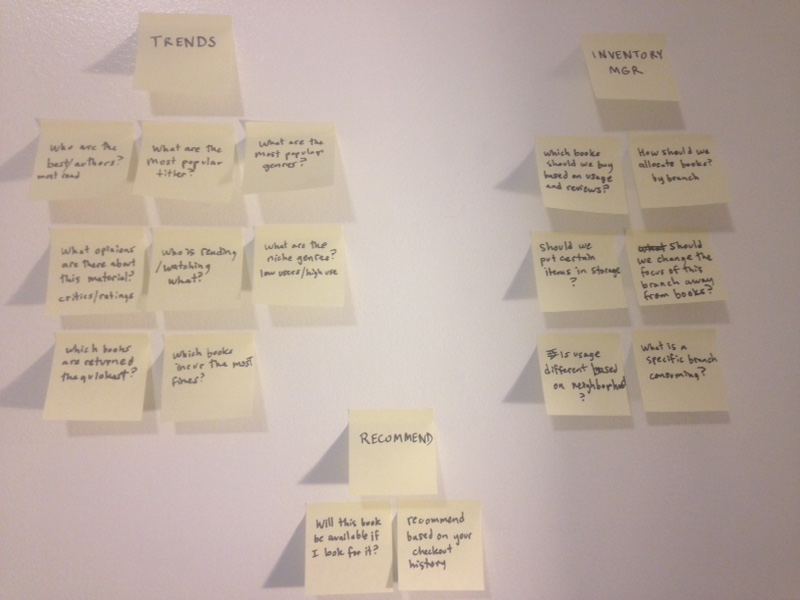 TRENDS
Who are the
best/authors?
most read
What are the
most popular
titles?
What are the
most popular
genres?
What opinions
are there about
this material?
critics/ratings
Who is reading
/watching
what?
What are the
niche genres?
low users/high use
Which books
are returned
the quickest?
Which books
incur the most
fines?
INVENTORY
MGR
Which books
should we buy
based on usage
and reviews?
How should we
allocate books?
by branch
Should we
put certain
items in storage
?
what should
we change the
focus of this
branch away
from books?
is usage
different based
on neighborhood
?
What is a
specific branch
consuming?
RECOMMEND
Will this book
be available if
I look for it?
recommend
based on your
checkout
history